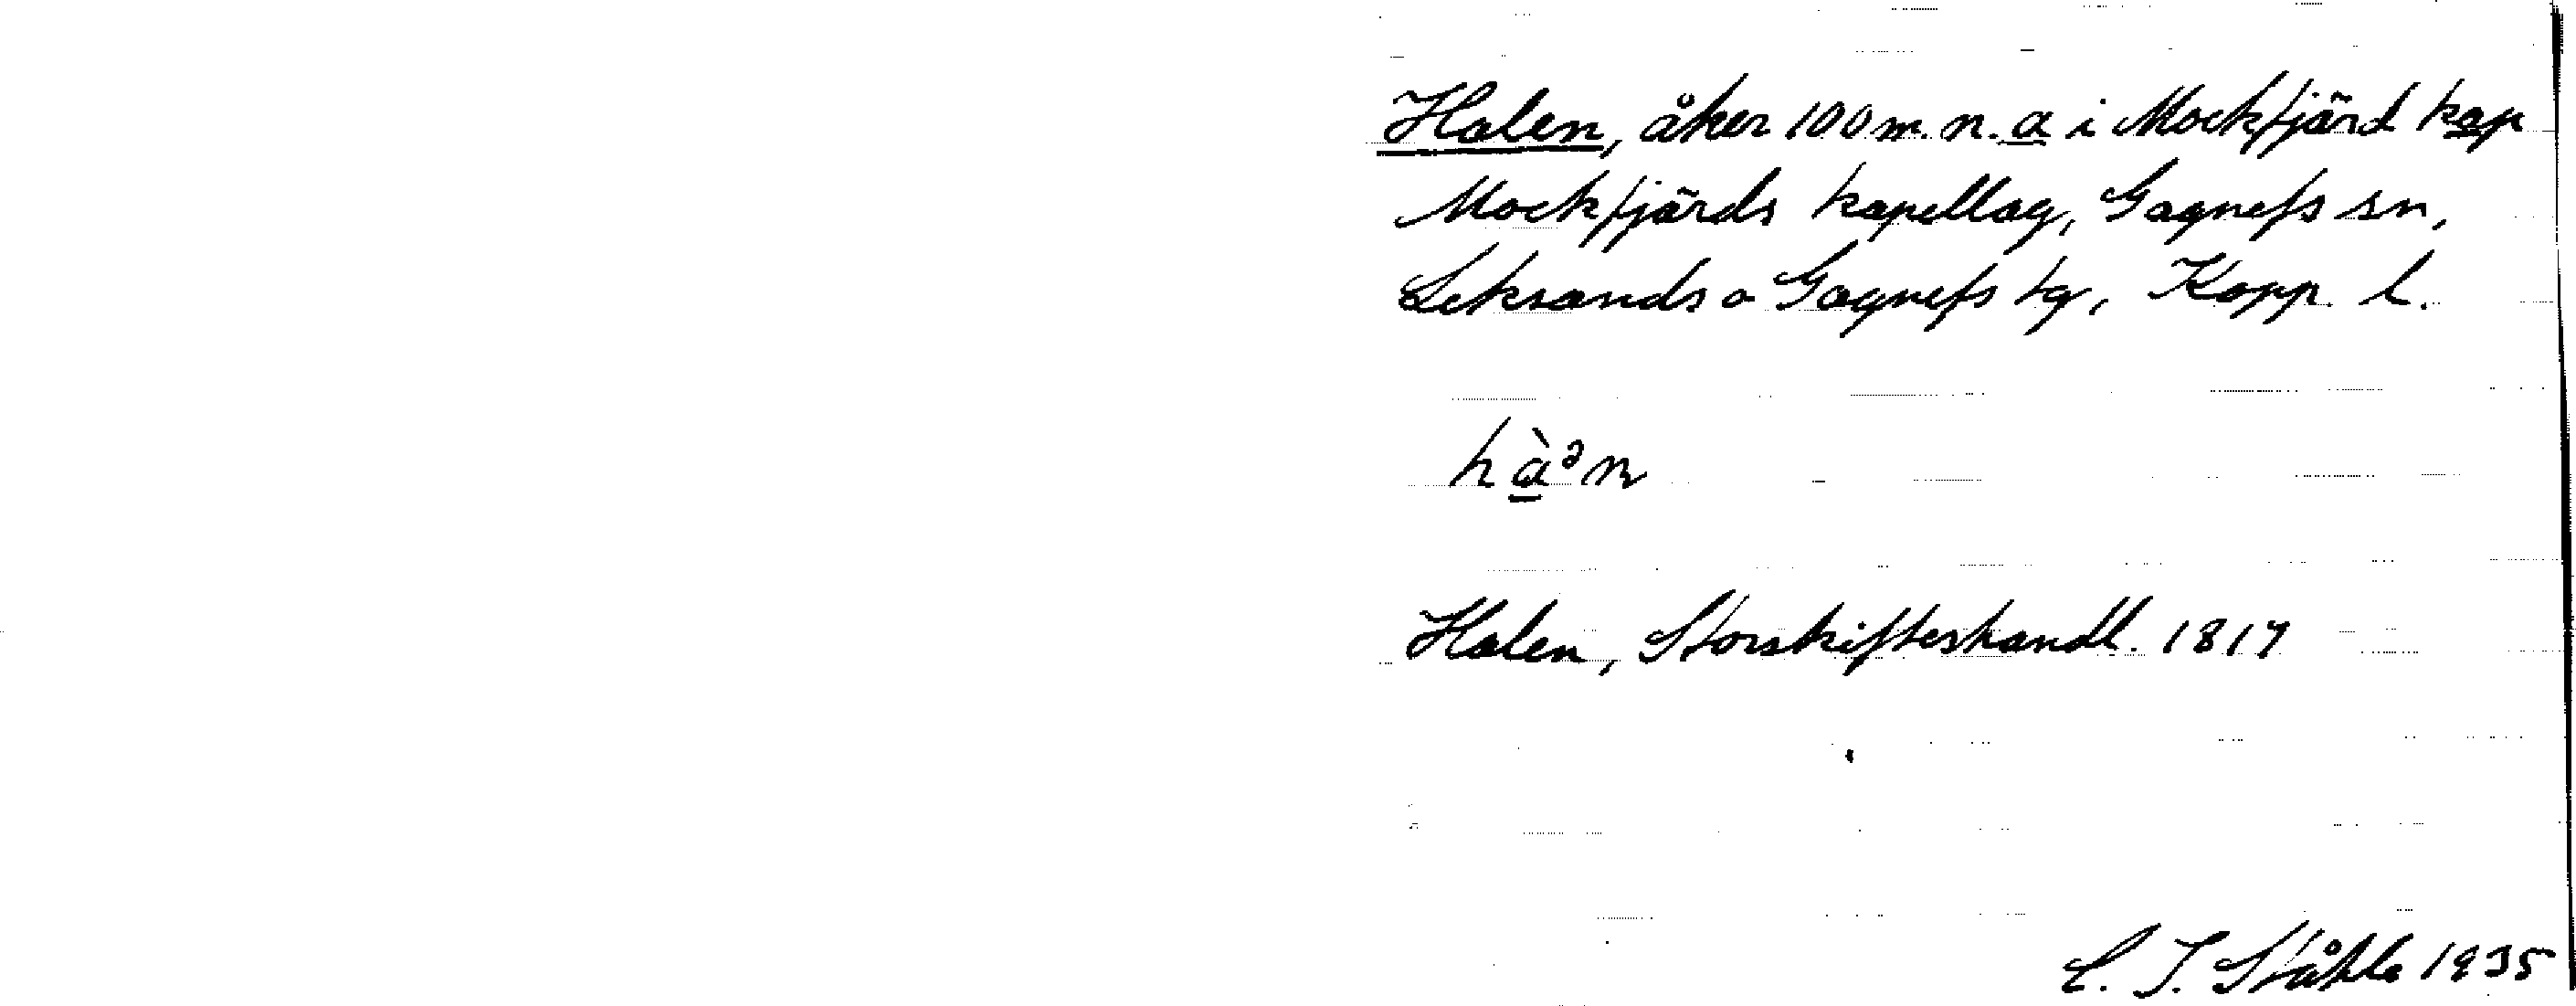 Halen, åker 100 m. n. a i Mockfjärd kap
Mockfjärds kapellag, Gagnefs sn,
Leksands o Gagnefs tg, Kopp. l.
hàən
Halen, Storskifteshandl. 1817
C. I. Ståhle 1935